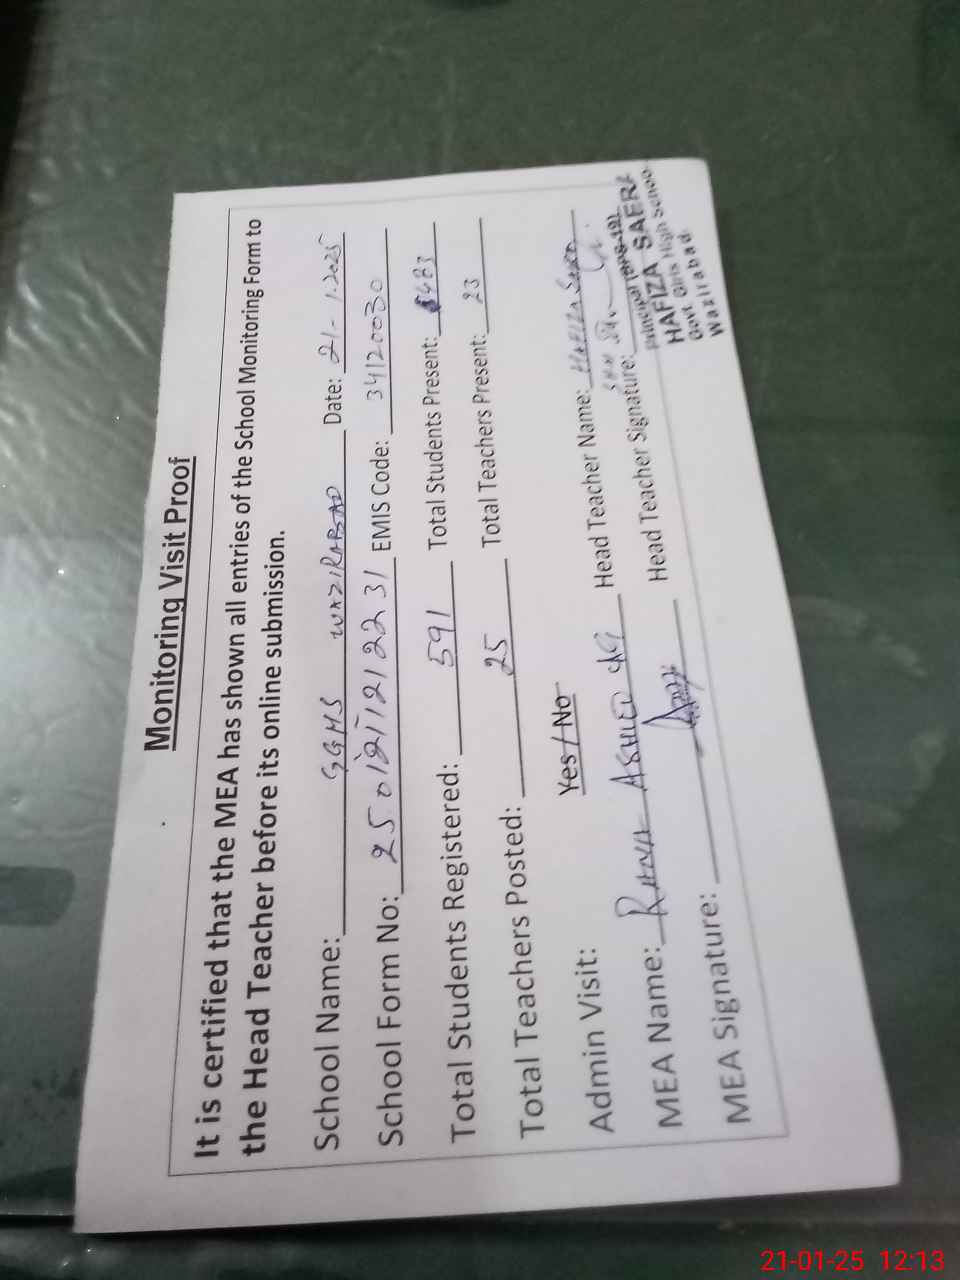 Monitoring Visit Proof
It is certified that the MEA has shown all entries of the School Monitoring Form to
the Head Teacher before its online submission.
School Name: GGHS WAZIRABAD Date: 21-1-2025
School Form No: EMIS Code: 34120030
Total Students Registered: 591 Total Students Present: 483
Total Teachers Posted: 25 Total Teachers Present: 23
Admin Visit: Yes/No
MEA Name: RANA ASHIEQ Head Teacher Name: HAFIZA SAERA
MEA Signature: Head Teacher Signature:
Principal (BPS-19)
HAFIZA SAERA
Govt. Girls High School
Wazirabad
21-01-25 12:13